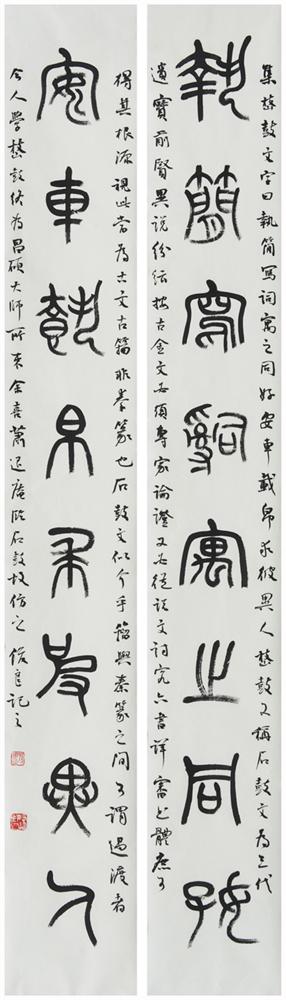 集鼓文字曰執簡寫詞寓之同好安車載帛求彼異人鼓又稱石鼓文為三代
執簡寫詞寓之同好
遺寶前賢異說紛紜按古金文必須專家論證又必從說文究六書詳審體庶可
得其根源視此當為古文古籀非秦篆也石鼓文似介乎籀與秦篆之間可謂過渡者
安車載帛求彼異人
今人學鼓為昌碩大師所束余喜蕭退庵臨石鼓故仿之記之